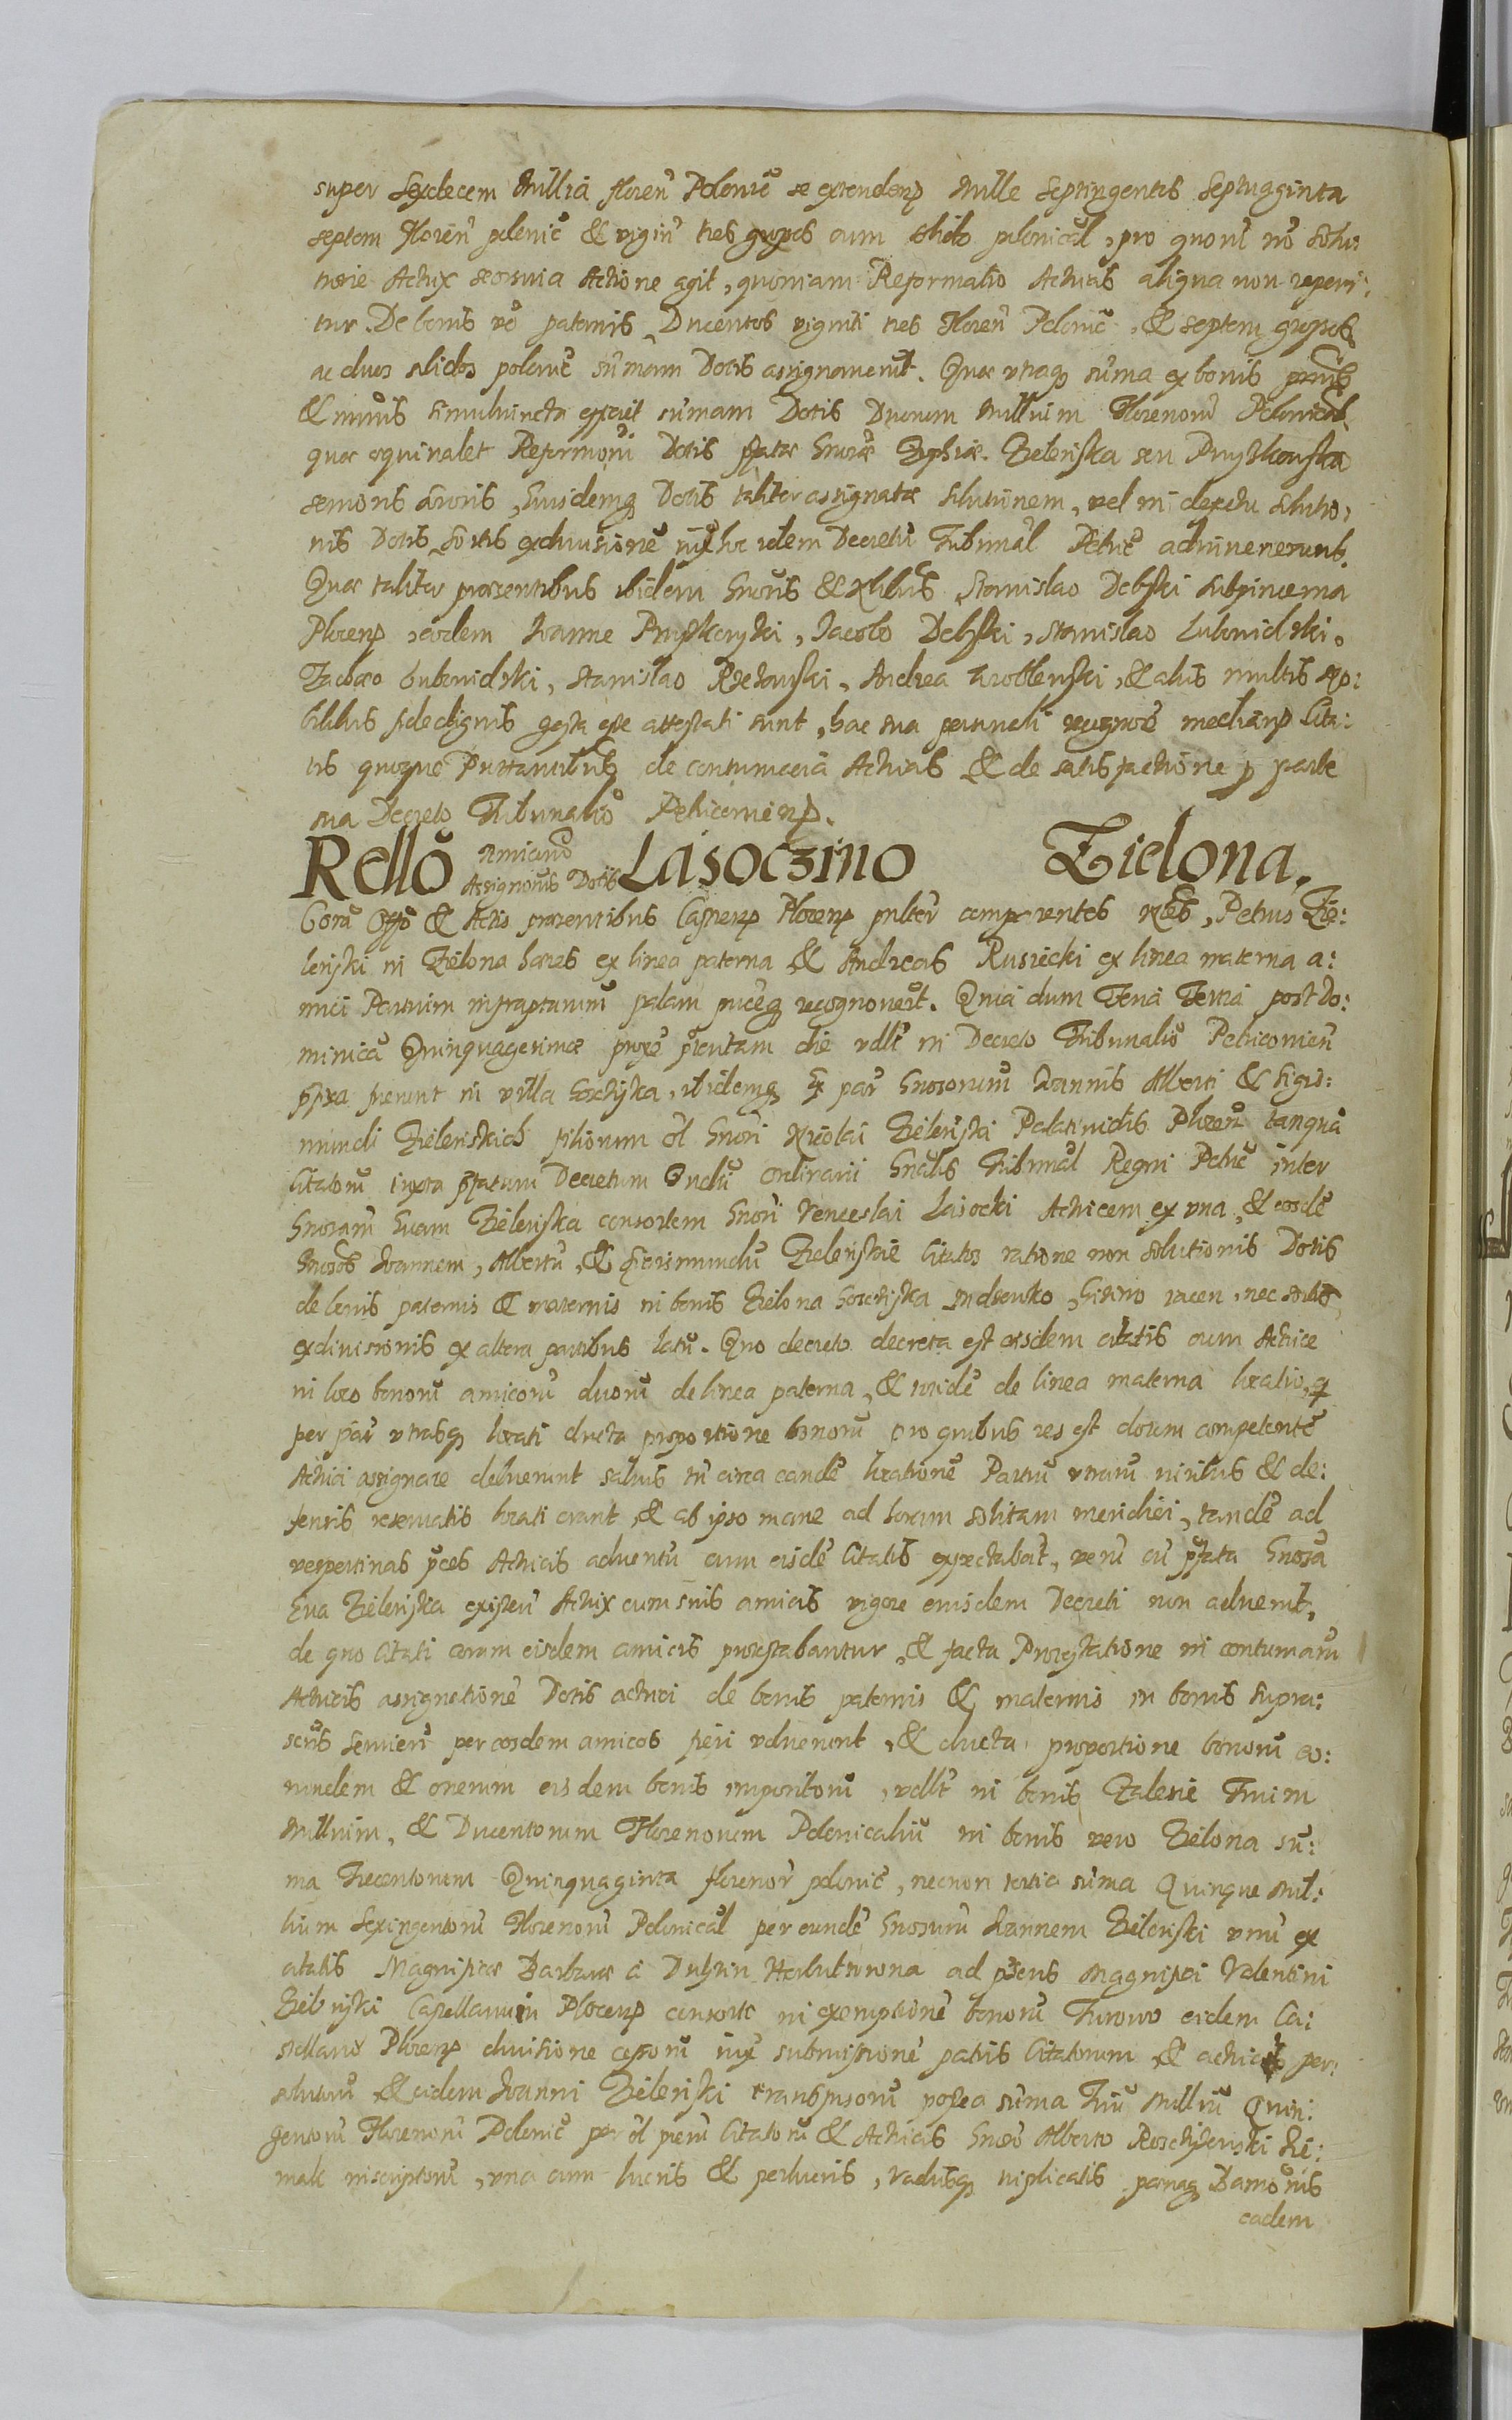 super Sexdecem Millia floren Polonic se extendenp Mille Septingentis Septuaginta
septem Floren polonic & vigin tres grossos cum solido polonical, pro quoru no solu:
tione Actrix seorsiva Actione agit, quoniam Reformatio Actricis aliqua non reperi:
tur. De bonis vo paternis Ducentos viginti tres Floren Polonic, & septem grossos
ac duos solidos polonic sumam Dotis assignaverut. Quae utraq suma ex bonis prnis
& mnis simul iuncta efficit sumam Dotis Duorum Millium Florenoru Polonical
quae equivalet Reformoni Dotis pfatae Gnosae Zophiae Zielenska seu Pruszkowska
senioris sororis, Eiusdemq Dotis taliter assignatae solutionem, vel in defectu solutio:
nis Dotis Sortis exdivisione iux hoc idem Decretu Tribunal Petric adinvenerunt.
Quae taliter praesentibus ibidem Gnosis & Nblibus Stanislao Debski Subpincerna
Plocenp, eodem Ioanne Pruszkowski, Iacobo Debski, Stanislao Lubowidzki,
Iacobo Lubowidzki, Stanislao Rzeszowski, Andrea Wroblewski, & aliis multis No:
bilibus fidedignis gesta esse attestati sunt, hac sua perundi recognoe medianp Cita:
tis quoque Puttantibus de contumacia Actricis & de satisfactione p parte
sua Decreto Tribunalio Petricovienp.
Rello Amicoru Assignonis Dotis Lasoczino Zielona.
Cora Offo & Actis praesentibus Castrenp Plocenp psnlter comparentes Nbles, Petrus Zie:
lenski in Zielona haeres ex linea paterna & Andreas Rusiecki ex linea materna a:
mici Partium infraptarum palam puceq recognoverut. Quia dum Feria Tertia post Do:
minica Quinquagesimae proxe pteritam die vdlt in Decreto Tribunalio Petricovien
pfixa fuerunt in villa Goschyska, ibidemq Ex par Gnosorum Ioannis Alberti & Sigis:
mundi Zielenskich filiorum ol Gnosi Nicolai Zielenski Palatinidis Plocen tanqua
Citatoru iuxta pfatum Decretum Iudii ordinarii Gnalis Tribunal Regni Petric inter
Gnosam Evam Zielenska consortem Gnosi Venceslai Lasocki Actricem ex una, & eosde
Gnosos Ioannem, Albertu, & Sigismundu Zielenskie Citatos ratione non solutionis Dotis
de bonis paternis & maternis in bonis Zielona Goschyska Mdzewko, Gisino iacen, nec Sortis
exdivisionis ex altera partibus latu. Quo decreto decreta est eisdem citatis cum Actrice
in loco bonoru amicoru duoru de linea paterna, & totide de linea materna locatio, q
per par utrasq locati ducta proportione bonoru pro quibus res est dotem competente
Actrici assignare debuerunt salvis tn circa eande locatione Partiu utraru iuribus & de:
fensis reservatis locati erant, & ab ipso mane ad horam solitam meridiei, tande ad
vespertinas pces Actricis adventu cum eisde Citatis expectabat, veru cu pfata Gnosa
Eva Zielenska existen Actrix cum suis amicis vigore eiusdem Decreti non advenit,
de quo Citati coram eisdem amicis protestabantur, & facta Protestatione in contumaru
Actricis assignatione Dotis actrici de bonis paternis & maternis in bonis supra:
scris Servien per eosdem amicos fieri voluerunt, & ducta proportione bonoru eo:
rundem & onerum eisdem bonis impositoru, vdlt in bonis Zalesie Trium
Millium, & Ducentorum Florenorum Polonicaliu in bonis vero Zielona su:
ma Trecentorum Quinquaginta florenor polonic, necnon tertia suma Quinque Mil:
lium Sexingentoru Florenoru Polonical per eunde Gnosum Ioannem Zielenski unu ex
citatis Magnificae Barbarae a Dulzin Herbultowna ad psens Magnifici Valentini
Zielinski Castellanum Plocenp consorte in exemptione bonoru Turowo eidem Ca:
stellano Plocenp divisione cessoru iux submissione patris Citatorum & actricis per:
solutoru & eidem Ioanni Zielenski transfusoru postea suma Triu Milliu Quin:
gentoru Florenoru Polonic per ol prem Citatoru & Actricis Gnoso Alberto Rosciszewski Si:
mili inscriptoru, una cum lucris & perlucris, Vadiisq triplicatis paenaq Bannonis
eadem